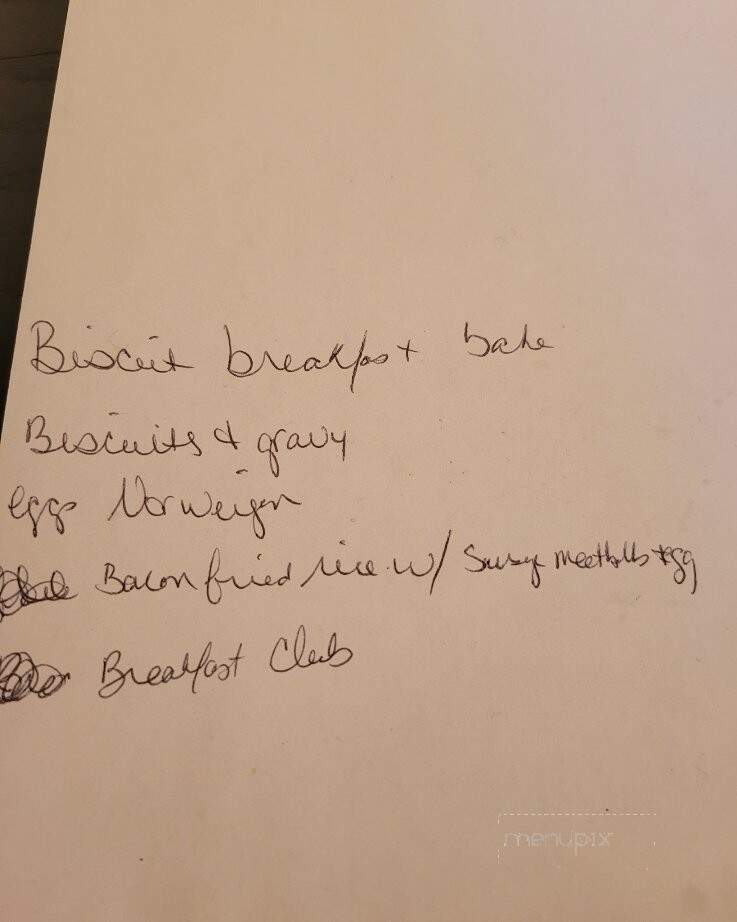 Biscuit breakfast bake
Biscuits & gravy
eggs Norweign
Bacon fried rice w/ Sausge meatballs + egg
Breakfast Club
menupix